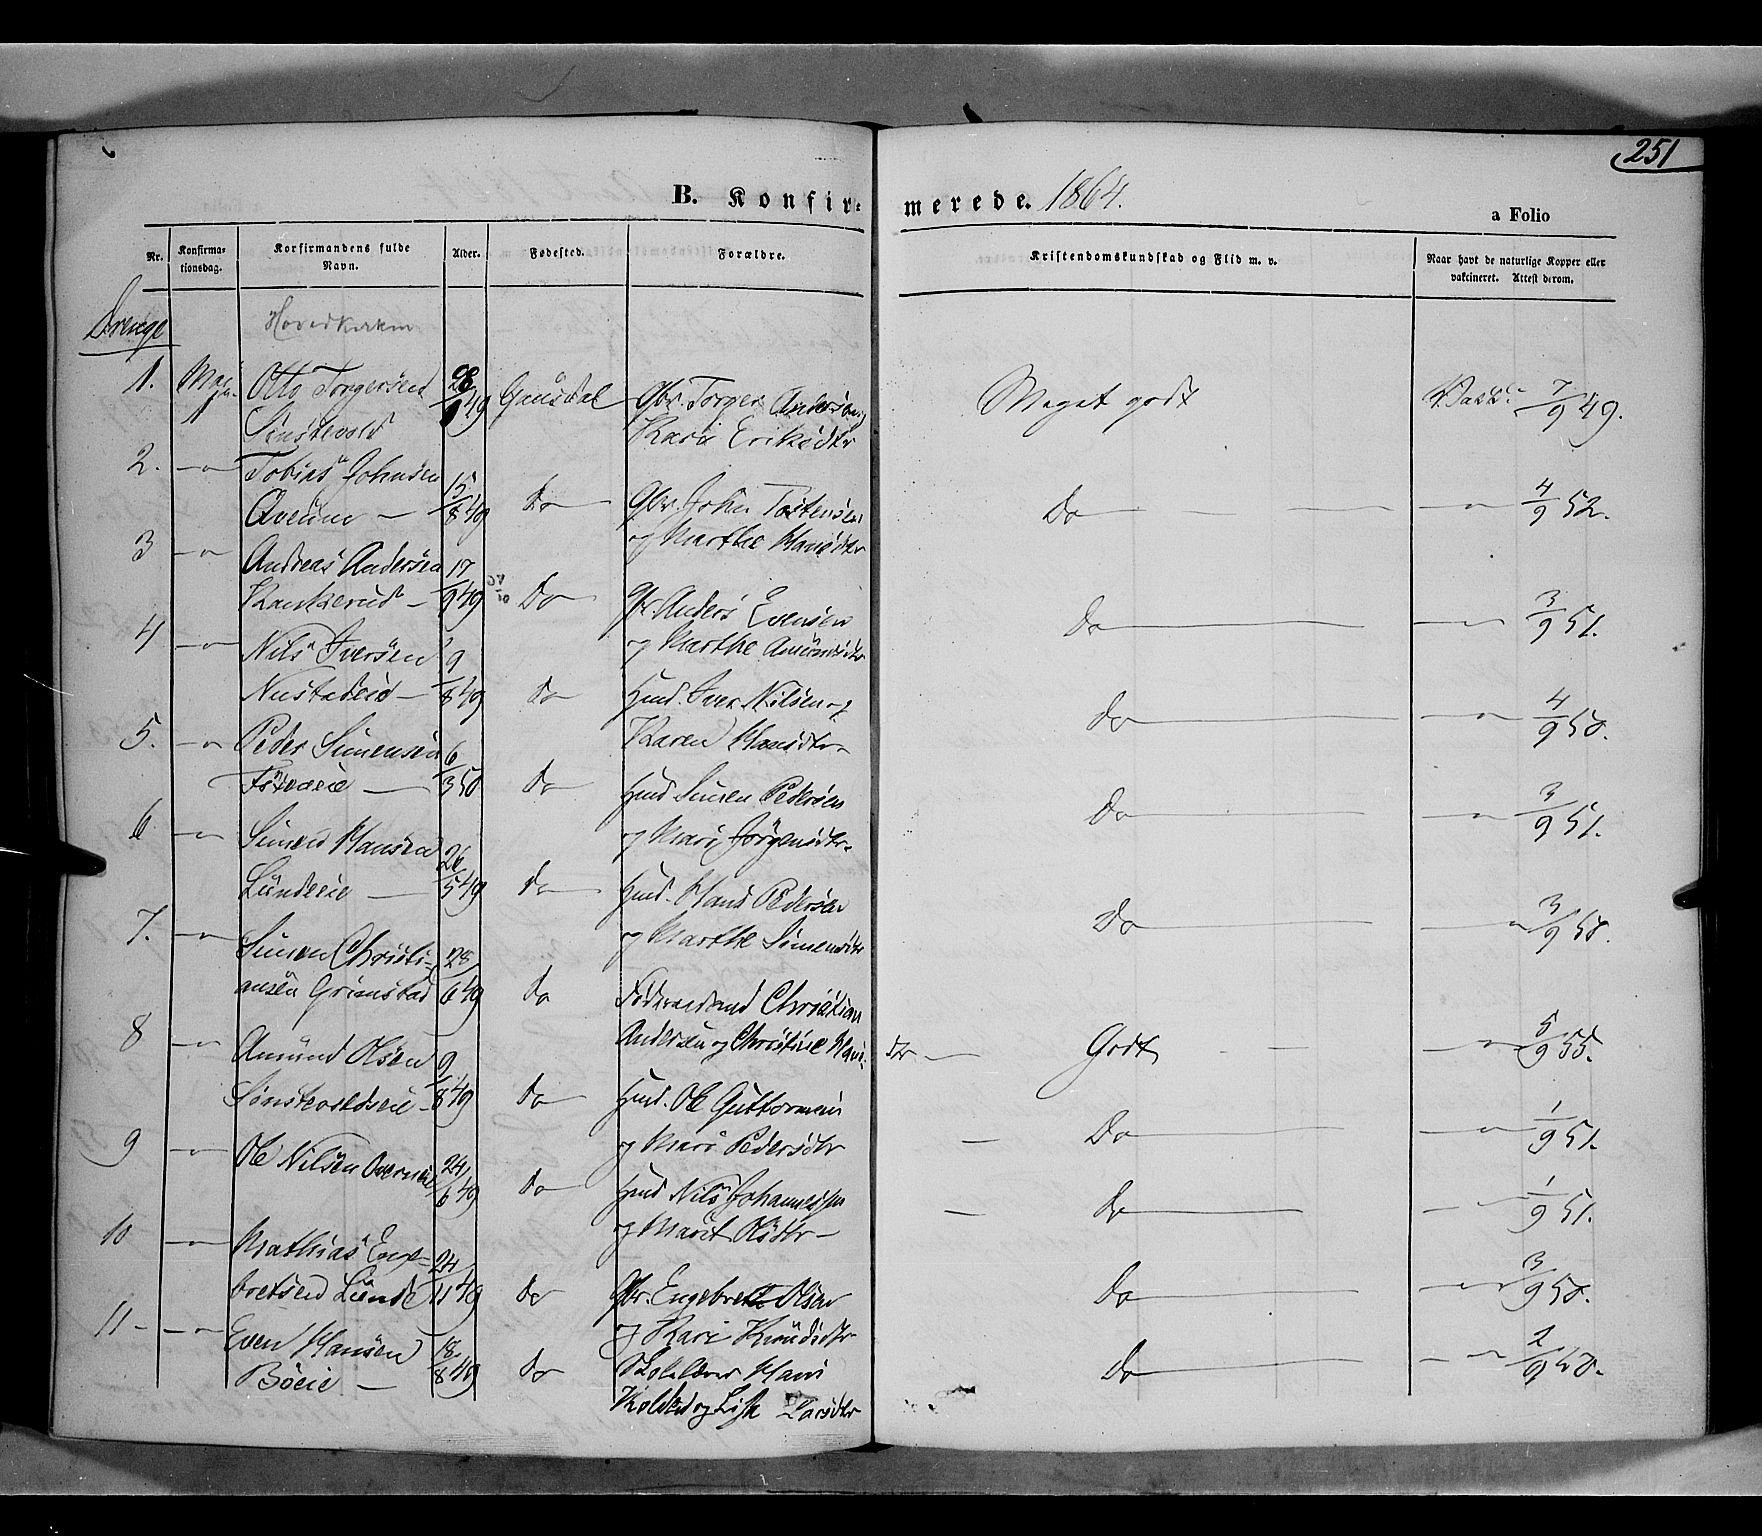 251
B. Konfirmerede. 1864.
a Folio
Nr. Konfirmationsdag. Korfirmandens fulde Navn. Alder. Fødested. Forældre. Kristendomskundskab og Flid m. v. Naar havt de naturlige Kopper eller vakcineret. Attest derom.
Drenge Hovedkirken
1. Otto Torgersen 28 Gausdal Gbr. Torger Andersen, Meget godt Vacc. 7/9 49.
49 Kari Eriksdtr
2. —"— Tobias Johnsen 15/8 49 Do Gbr. John Tostensen Do —"— 4/9 52.
og Marthe Hansdtr
3 —"— Andreas Andersen 17/9 49 Do Gbr. Anders Evensen Do —"— 3/9 51.
Kankerud — og Marthe Amundsdtr
4 —"— Nils Iversen 9/8 49 do Husd. Iver Nilsen og Do —"— 4/9 50.
Nustadeie — Karen Hansdtr
5. —"— Peder Simensen 6/3 50 Do Husd Simen Pedersen Do —"— 3/9 51.
og Mari Jörgensdtr
6 —"— Simen Hansen 26/5 49 do Husd. Hans Pedersen Do —"— 3/9 50.
Lundeeie — og Marthe Simensdtr
7. —"— Simen Christi- 28/6 49 do Christian Godt —"— 5/9 55.
ansen Grimstad Andersen og Christine Hans- dtr —
8 —"— Amund Olsen 9/8 49 Do Husd. Ole Guttormsen — Do —"— 1/9 51.
Sönstevoldseie — og Mari Pedersdtr
9 —"— Ole Nilsen 24/6 49 Do Husd Nils Johannessen — Do —"— 1/9 51.
og Marit Olsdtr —
10 —"— Mathias Enge- 24/11 49 do Gbr. Engebrett Olsen Do —"— 3/9 50.
bretsen Lunde og Kari Knudsdtr
11 — —"— Even Hansen 18/8 49 do Skolelærer Hans Do —"— 2/9 50.
Böeie — og Lisk Larsdtr